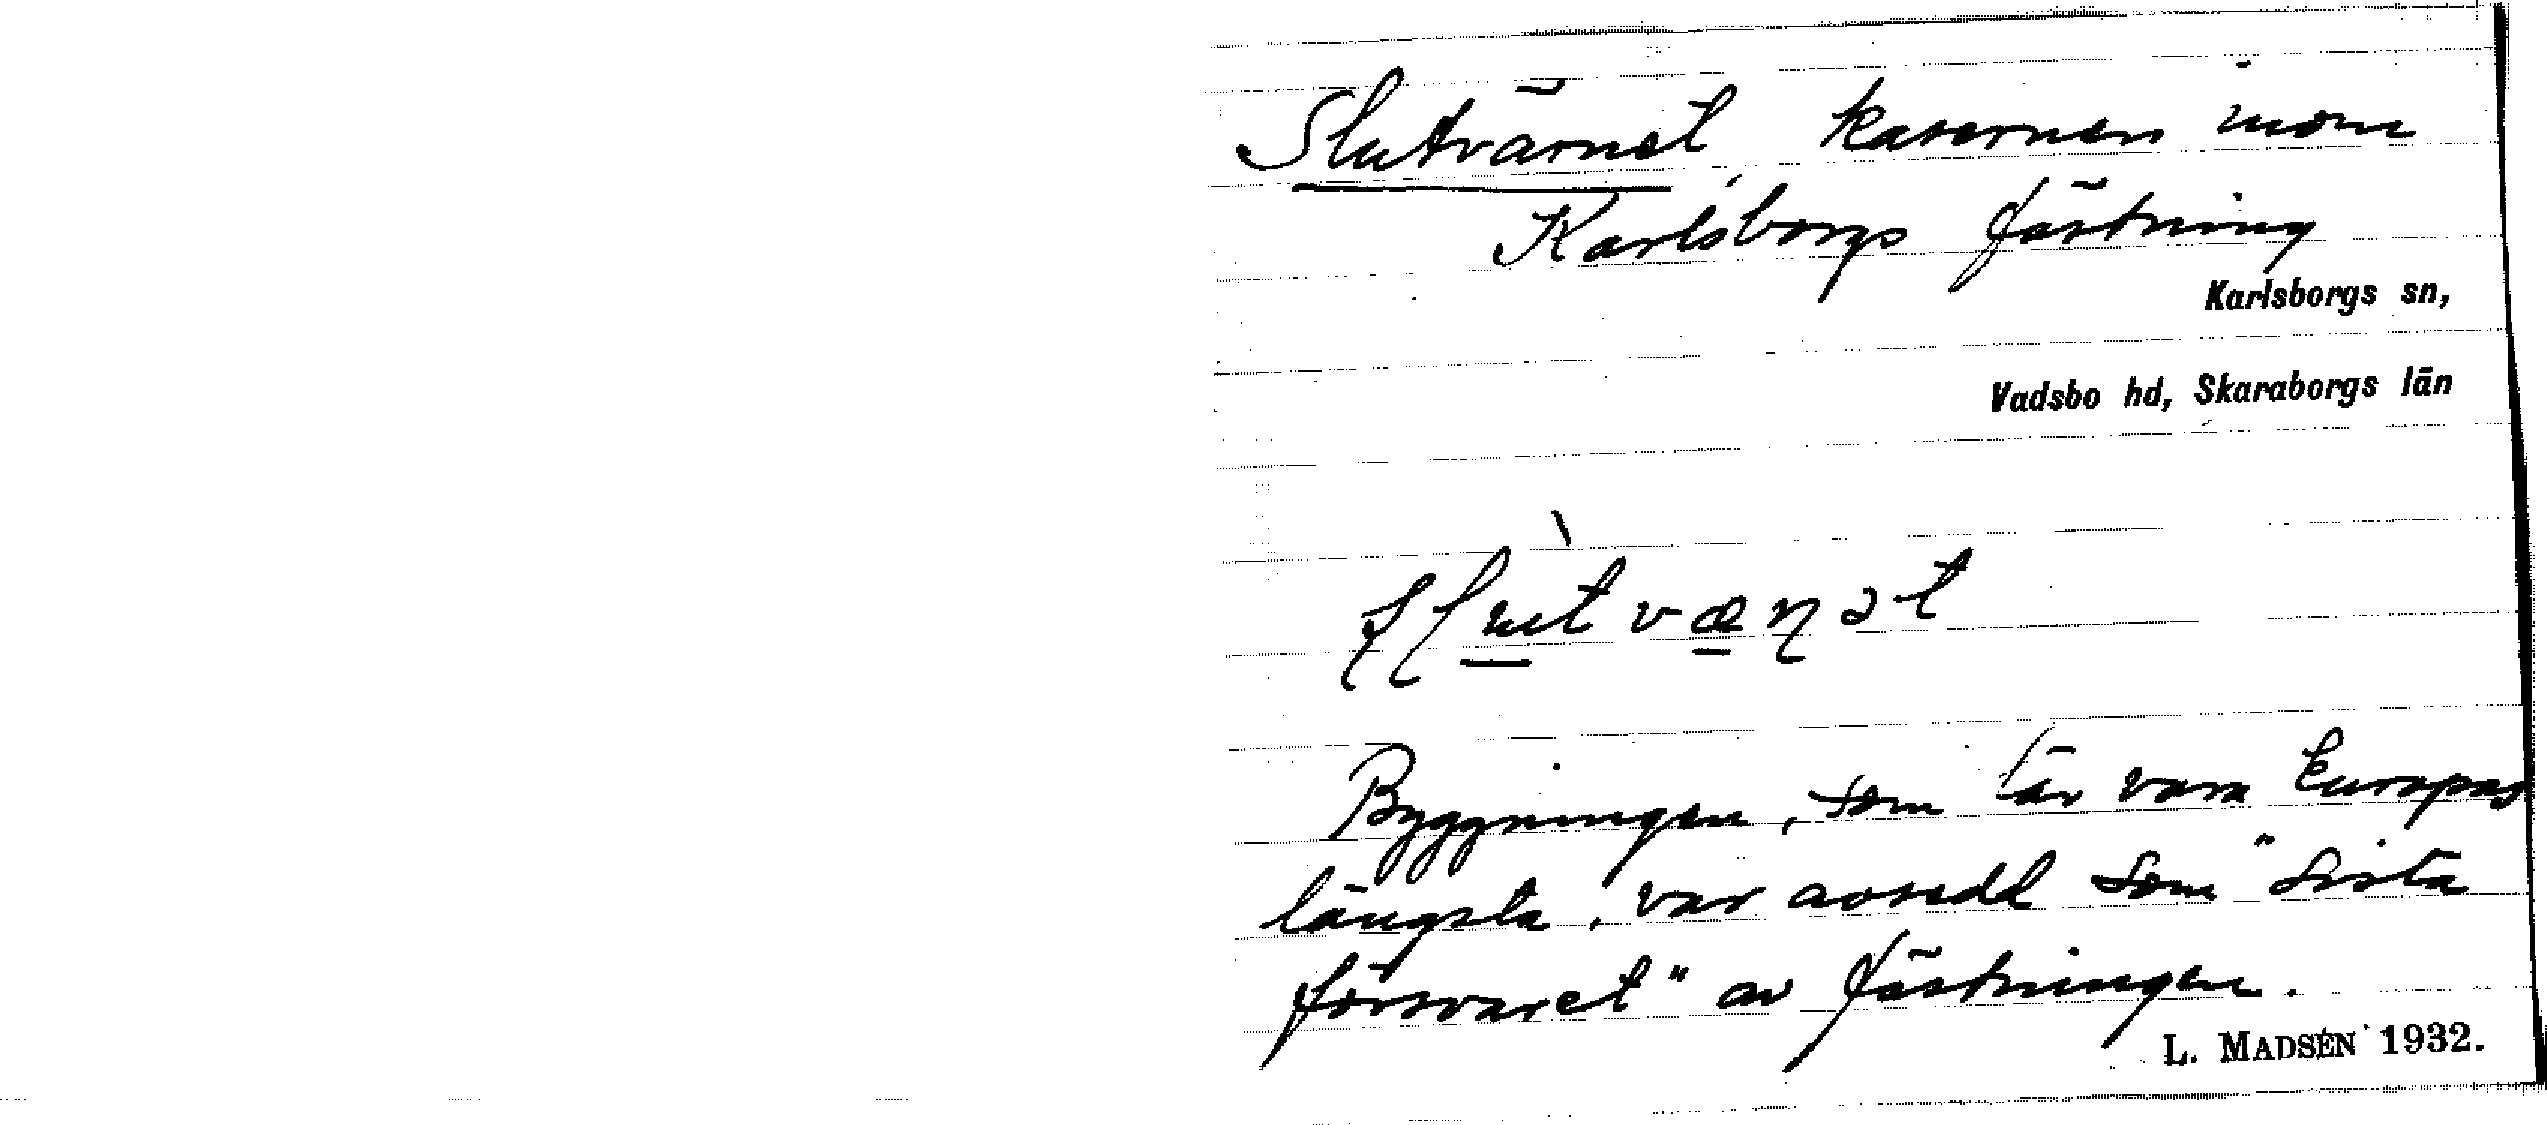 Slutvärnet, kasernen inom
Karlsborgs fästning
Karlsborgs sn,
Vadsbo hd, Skaraborgs län
Byggningen, som lär vara Europas
längsta, var avsedd som "sista
försvaret" av fästningen.
L. MADSÉN 1932.